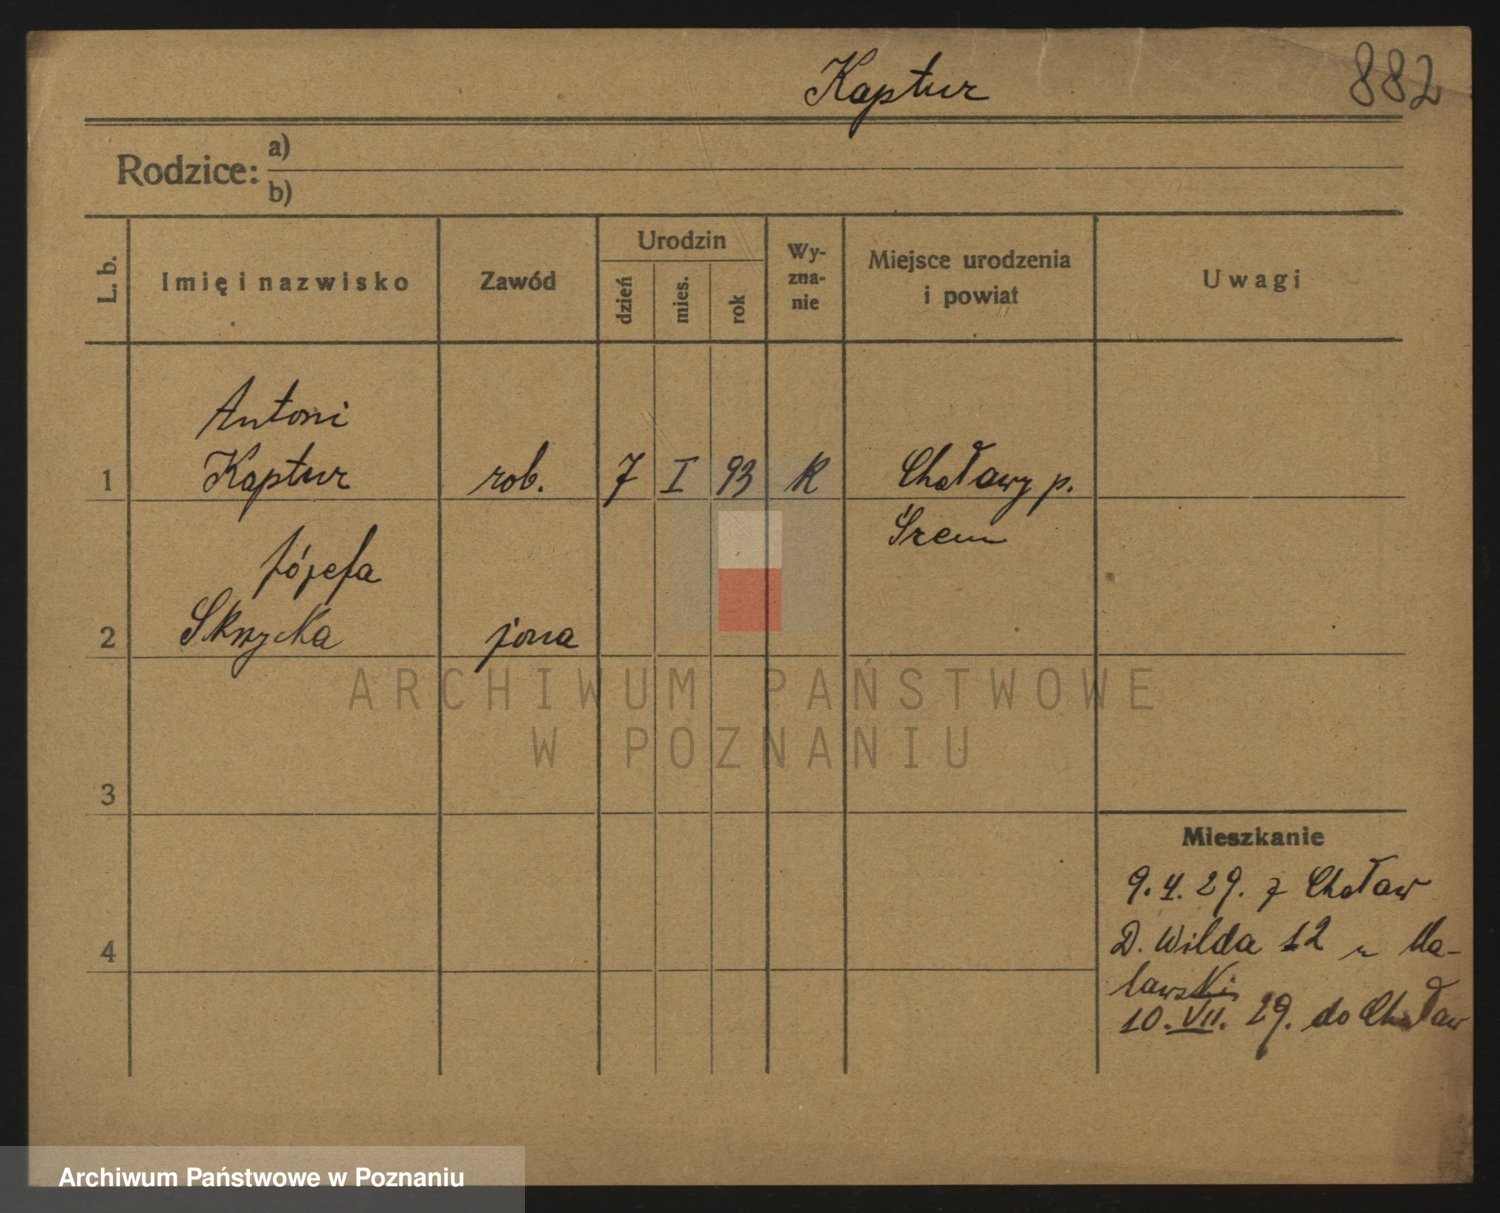 Kaptur 882
Rodzice: a)
b)
L. b. Imię i nazwisko Zawód Urodzin dzień mies. rok Wy-zna-nie Miejsce urodzenia i powiat Uwagi
Antoni
1 Kaptur rob. 7 I 93 R Chaławy p.
Śrem
Józefa
2 Skrzycka żona
3
Mieszkanie
9. 4. 29. z Chaław
4 D. Wilda 12 u Ma-
lawskij
10. VII. 29. do Chaław
ARCHIWUM PAŃSTWOWE
W POZNANIU
Archiwum Państwowe w Poznaniu